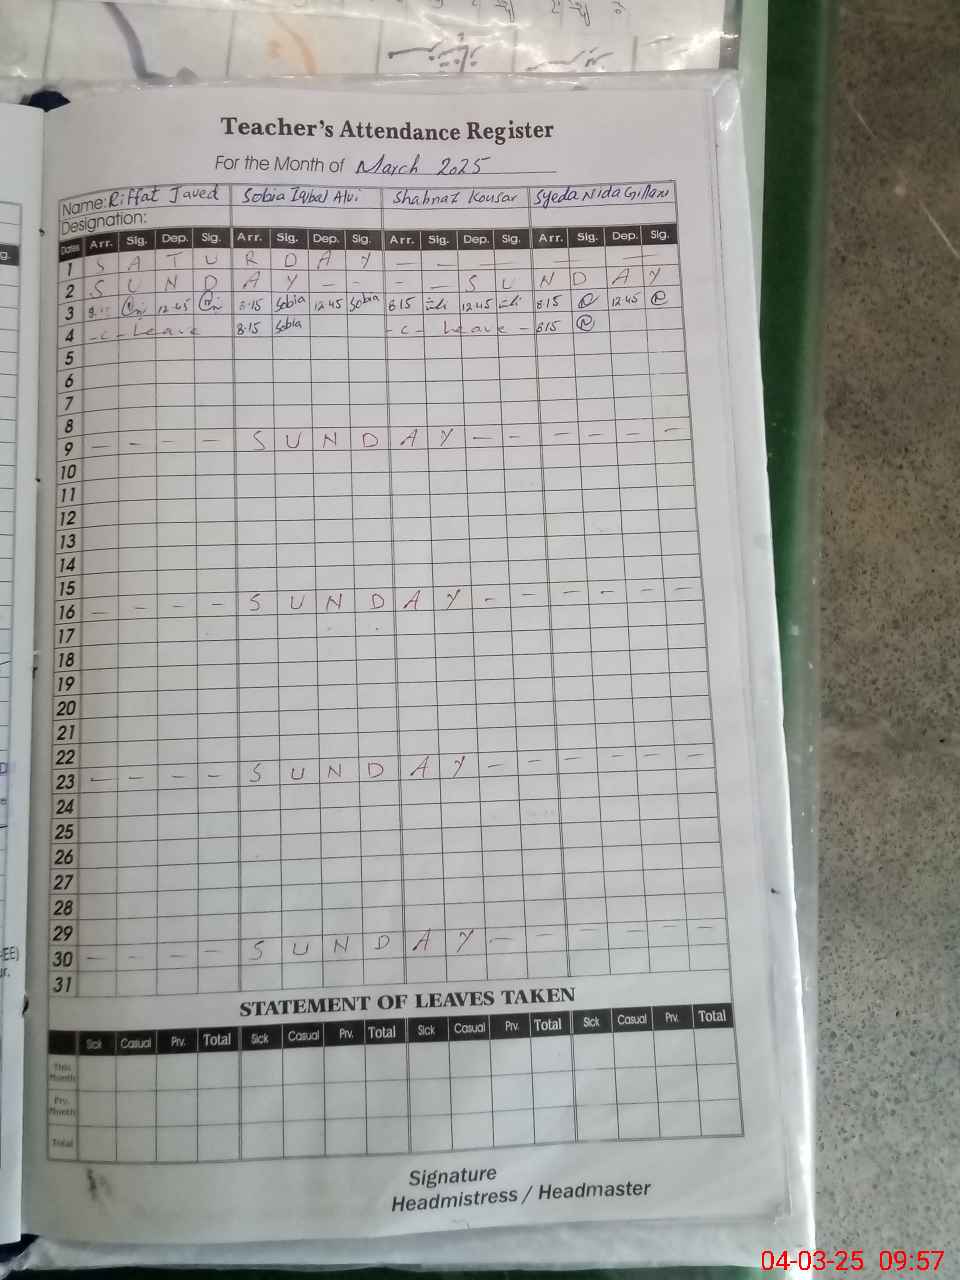 Teacher's Attendance Register
For the Month of March 2025
Name: Riffat Javed Sobia Iqbal Alvi Shahnaz Kousar Syeda Nida Gillani
Designation:
Dates Arr. Sig. Dep. Sig. Arr. Sig. Dep. Sig. Arr. Sig. Dep. Sig. Arr. Sig. Dep. Sig.
1 S A T U R D A Y — — — — — — —
2 S U N D A Y - - - - S U N D A Y
3 12:45 8:15 Sobia 12:45 Sobia 8:15 12:45 8:15 12:45
4 -C- Leave 8:15 Sobia -C- Leave - 8:15
5
6
7
8
9 — — — — S U N D A Y — — — — — —
10
11
12
13
14
15
16 — - - — S U N D A Y - - — — — —
17
18
19
20
21
22
23 — - - — S U N D A Y — — — — — — —
24
25
26
27
28
29
30 — — — — S U N D A Y — — — — — — —
31
STATEMENT OF LEAVES TAKEN
Sick Casual Prv. Total Sick Casual Prv. Total Sick Casual Prv. Total Sick Casual Prv. Total
This Month
Prv. Month
Total
Signature
Headmistress / Headmaster
04-03-25 09:57